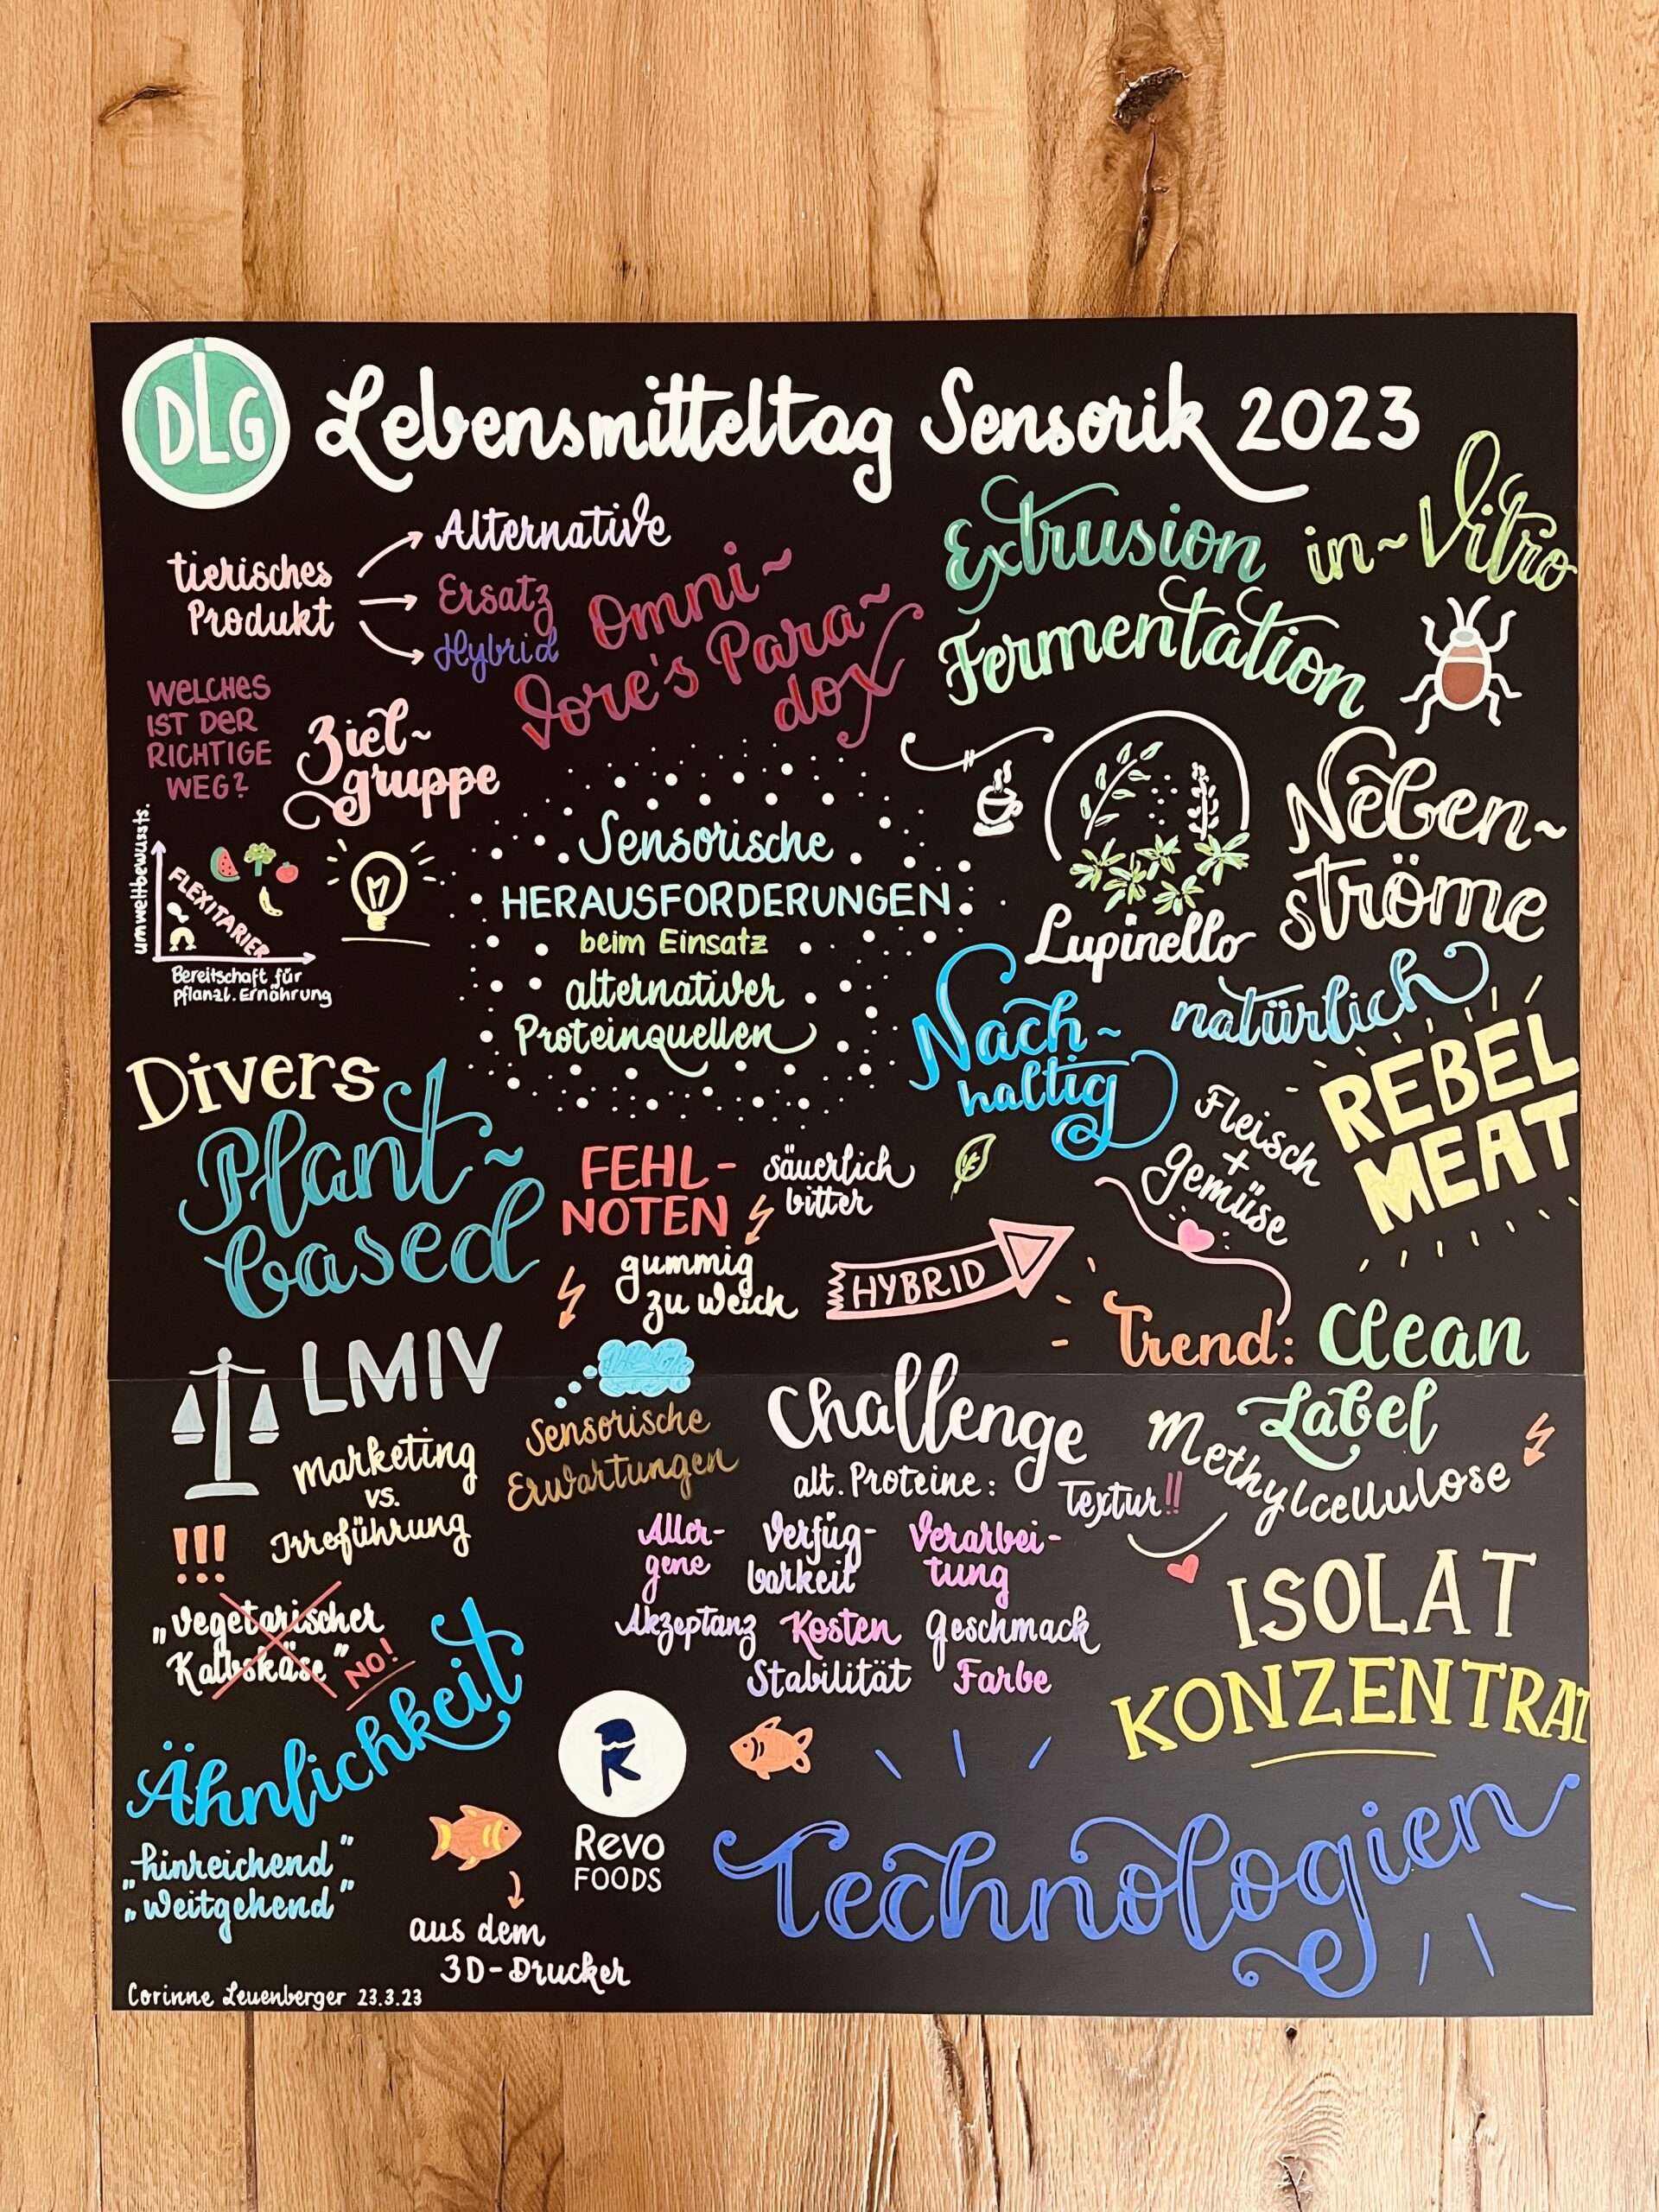 DLG
Lebensmitteltag Sensorik 2023
tierisches
Produkt
Alternative
Ersatz
Hybrid
Omni~
vore's Para~
dox
Extrusion
in~Vitro
Fermentation
WELCHES
IST DER
RICHTIGE
WEG?
Ziel~
gruppe
umweltbewussts.
FLEXITARIER
Bereitschaft für
pflanzl. Ernährung
Sensorische
HERAUSFORDERUNGEN
beim Einsatz
alternativer
Proteinquellen
Lupinello
Neben~
ströme
Nach~
haltig
natürlich
REBEL
MEAT
Fleisch
+
Gemüse
Divers
Plant~
based
FEHL-
NOTEN
säuerlich
bitter
gummig
zu weich
HYBRID
Trend: Clean
Label
LMIV
Marketing
vs.
Irreführung
!!!
Sensorische
Erwartungen
Challenge
alt. Proteine:
Textur!!
Methylcellulose
Aller-
gene
Verfüg-
barkeit
Verarbei-
tung
Akzeptanz Kosten Geschmack
Stabilität Farbe
„Vegetarischer
Kalbskäse" NO!
ISOLAT
KONZENTRAT
Ähnlichkeit
„hinreichend"
„weitgehend"
R
Revo
FOODS
aus dem
3D-Drucker
Technologien
Corinne Leuenberger 23.3.23